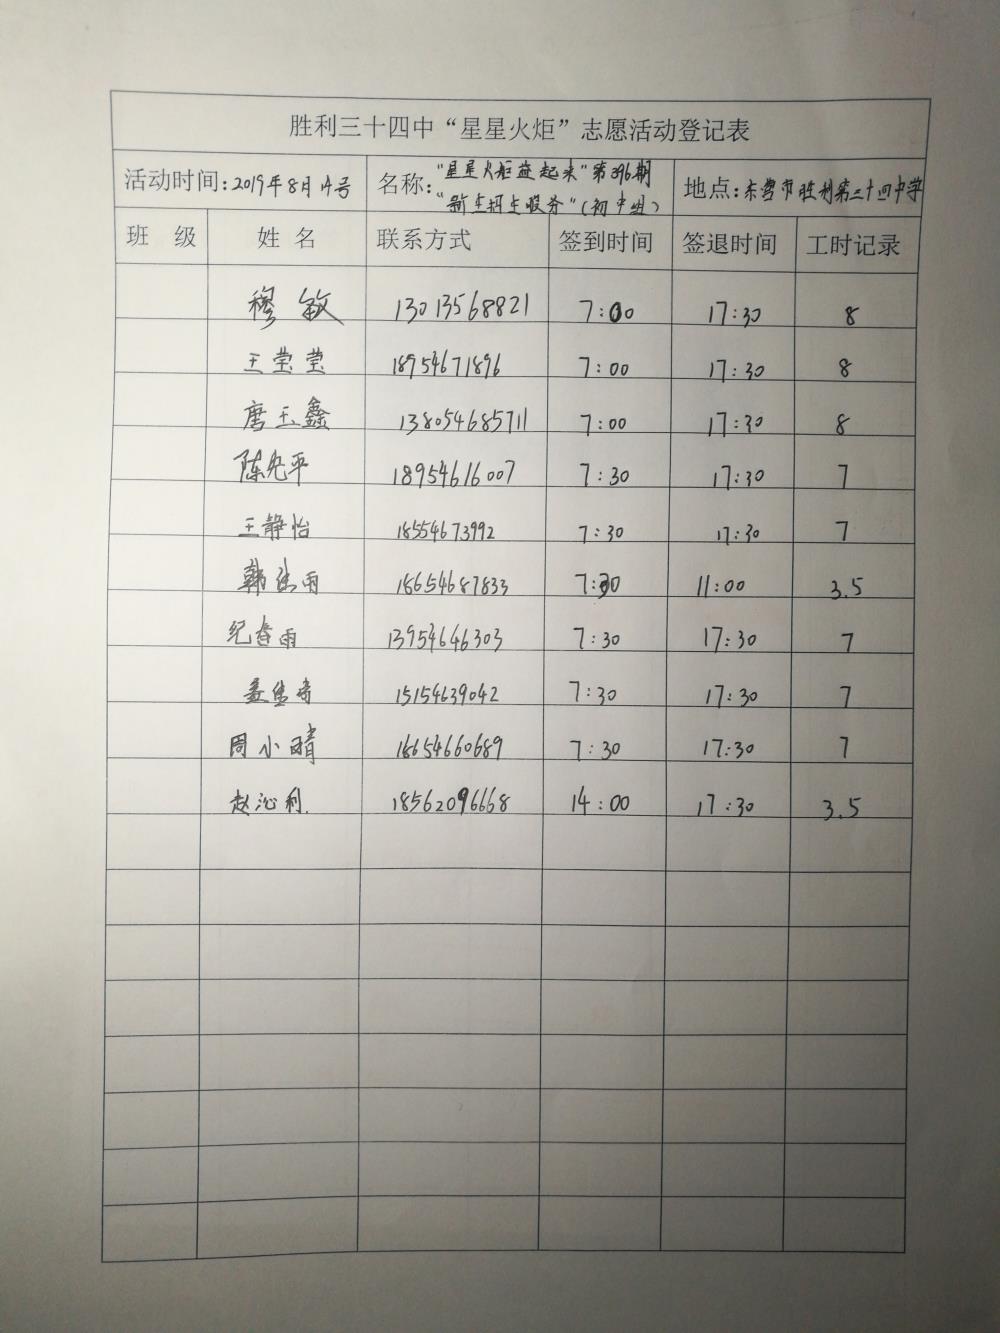 胜利三十四中“星星火炬”志愿活动登记表
活动时间：2019年8月14号 名称：“星星火炬燃起来”第396期 “新生招生服务”（初中组） 地点：东营市胜利第三十四中学
班 级 姓 名 联系方式 签到时间 签退时间 工时记录
穆敏 13013568821 7:00 17:30 8
王莹莹 18954671896 7:00 17:30 8
唐玉鑫 13805468571 7:00 17:30 8
陈允平 18954616007 7:30 17:30 7
王静怡 18554673992 7:30 17:30 7
韩 雨 18654687833 7:30 11:00 3.5
纪春雨 13954646303 7:30 17:30 7
15154639042 7:30 17:30 7
周小晴 18654660689 7:30 17:30 7
赵沁利 18562096668 14:00 17:30 3.5